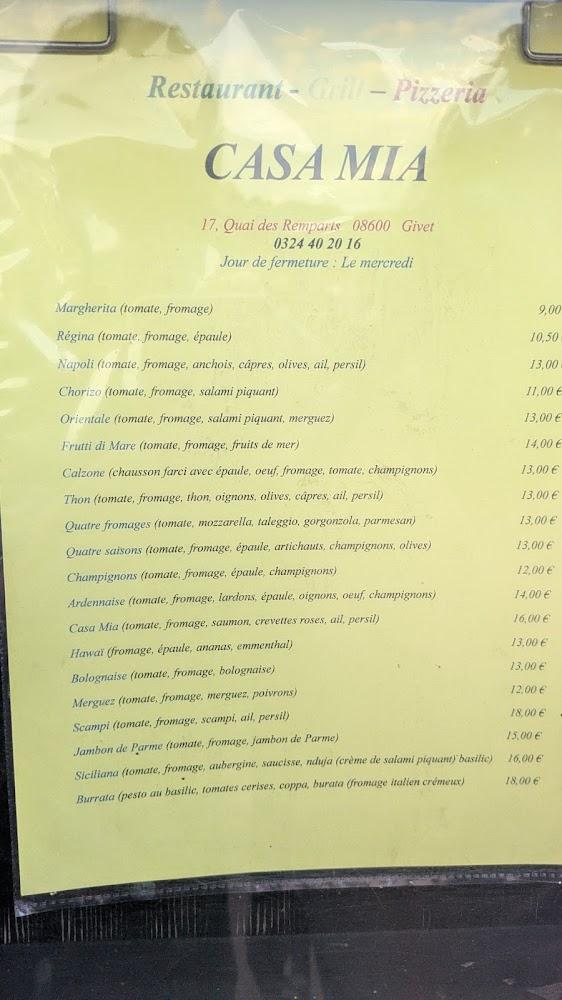 Restaurant - Grill – Pizzeria
CASA MIA
17, Quai des Remparts 08600 Givet
0324 40 20 16
Jour de fermeture : Le mercredi
Margherita (tomate, fromage) 9,00
Régina (tomate, fromage, épaule) 10,50
Napoli (tomate, fromage, anchois, câpres, olives, ail, persil) 13,00
Chorizo (tomate, fromage, salami piquant) 11,00 €
Orientale (tomate, fromage, salami piquant, merguez) 13,00 €
Frutti di Mare (tomate, fromage, fruits de mer) 14,00 €
Calzone (chausson farci avec épaule, oeuf, fromage, tomate, champignons) 13,00 €
Thon (tomate, fromage, thon, oignons, olives, câpres, ail, persil) 13,00 €
Quatre fromages (tomate, mozzarella, taleggio, gorgonzola, parmesan) 13,00 €
Quatre saisons (tomate, fromage, épaule, artichauts, champignons, olives) 13,00 €
Champignons (tomate, fromage, épaule, champignons) 12,00 €
Ardennaise (tomate, fromage, lardons, épaule, oignons, oeuf, champignons) 14,00 €
Casa Mia (tomate, fromage, saumon, crevettes roses, ail, persil) 16,00 €
Hawaï (fromage, épaule, ananas, emmenthal) 13,00 €
Bolognaise (tomate, fromage, bolognaise) 13,00 €
Merguez (tomate, fromage, merguez, poivrons) 12,00 €
Scampi (tomate, fromage, scampi, ail, persil) 18,00 €
Jambon de Parme (tomate, fromage, jambon de Parme) 15,00 €
Siciliana (tomate, fromage, aubergine, saucisse, nduja (crème de salami piquant) basilic) 16,00 €
Burrata (pesto au basilic, tomates cerises, coppa, burata (fromage italien crémeux) 18,00 €